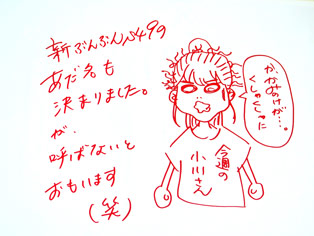 新ぶんぶん
あだ名も
決まりました。
が、
呼ばないと
おもいます
(笑)
かみのけが…。
くしゃくしゃに
今週の
小川さん